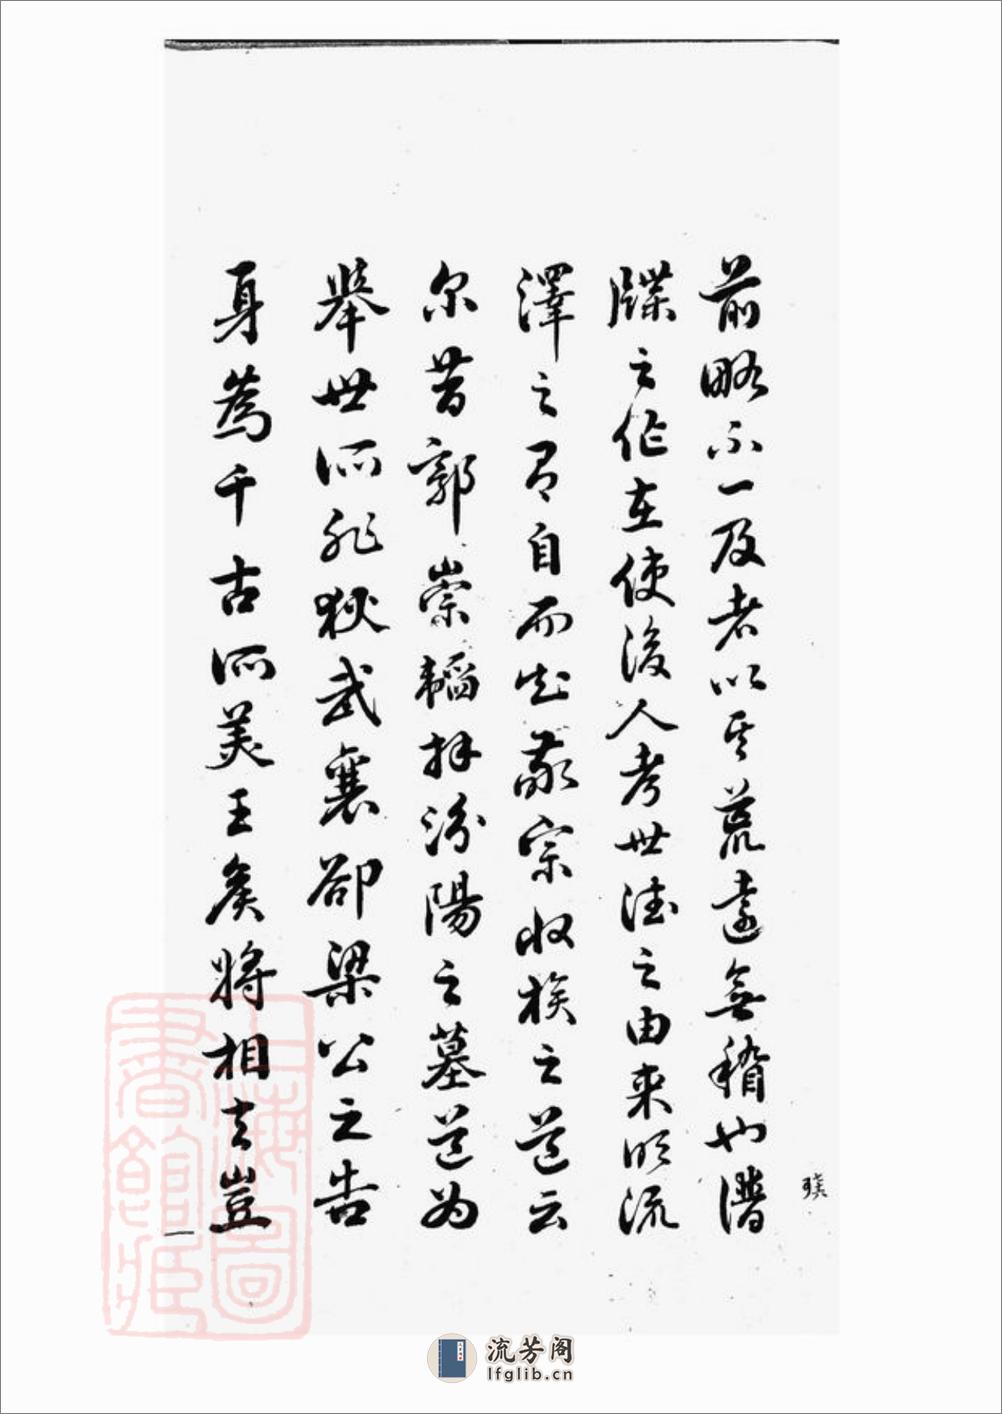 前略不一及者以其荒遠無稽也譜
牒之作在使後人考世德之由來明流
澤之有自而知敬宗收族之道云
尔昔郭崇韜拜汾陽之墓道为
舉世所非狄武襄卻梁公之告
身為千古所美王矦將相夫豈
一
上海圖書館藏
流芳阁
lfglib.cn